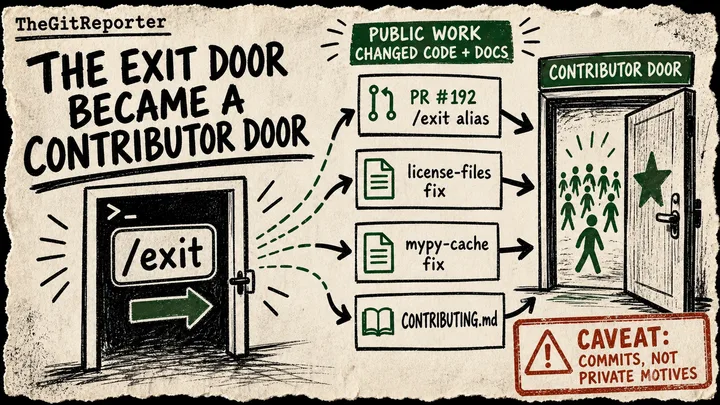 TheGitReporter
THE EXIT DOOR
BECAME A
CONTRIBUTOR DOOR
>_
/exit
PUBLIC WORK
CHANGED CODE + DOCS
PR #192
/exit alias
license-files
fix
mypy-cache
fix
CONTRIBUTING.md
CONTRIBUTOR DOOR
CAVEAT:
COMMITS, NOT
PRIVATE MOTIVES